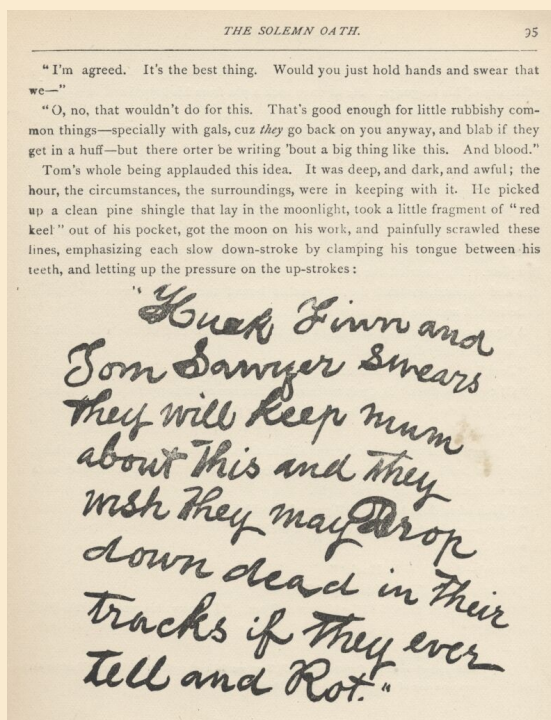 THE SOLEMN OATH. 95
"I'm agreed. It's the best thing. Would you just hold hands and swear that
we—"
"O, no, that wouldn't do for this. That's good enough for little rubbishy com-
mon things—specially with gals, cuz they go back on you anyway, and blab if they
get in a huff—but there orter be writing 'bout a big thing like this. And blood."
Tom's whole being applauded this idea. It was deep, and dark, and awful; the
hour, the circumstances, the surroundings, were in keeping with it. He picked
up a clean pine shingle that lay in the moonlight, took a little fragment of "red
keel" out of his pocket, got the moon on his work, and painfully scrawled these
lines, emphasizing each slow down-stroke by clamping his tongue between his
teeth, and letting up the pressure on the up-strokes:
"Huck Finn and
Tom Sawyer swears
they will keep mum
about this and they
wish they may Drop
down dead in Their
tracks if They ever
tell and Rot."